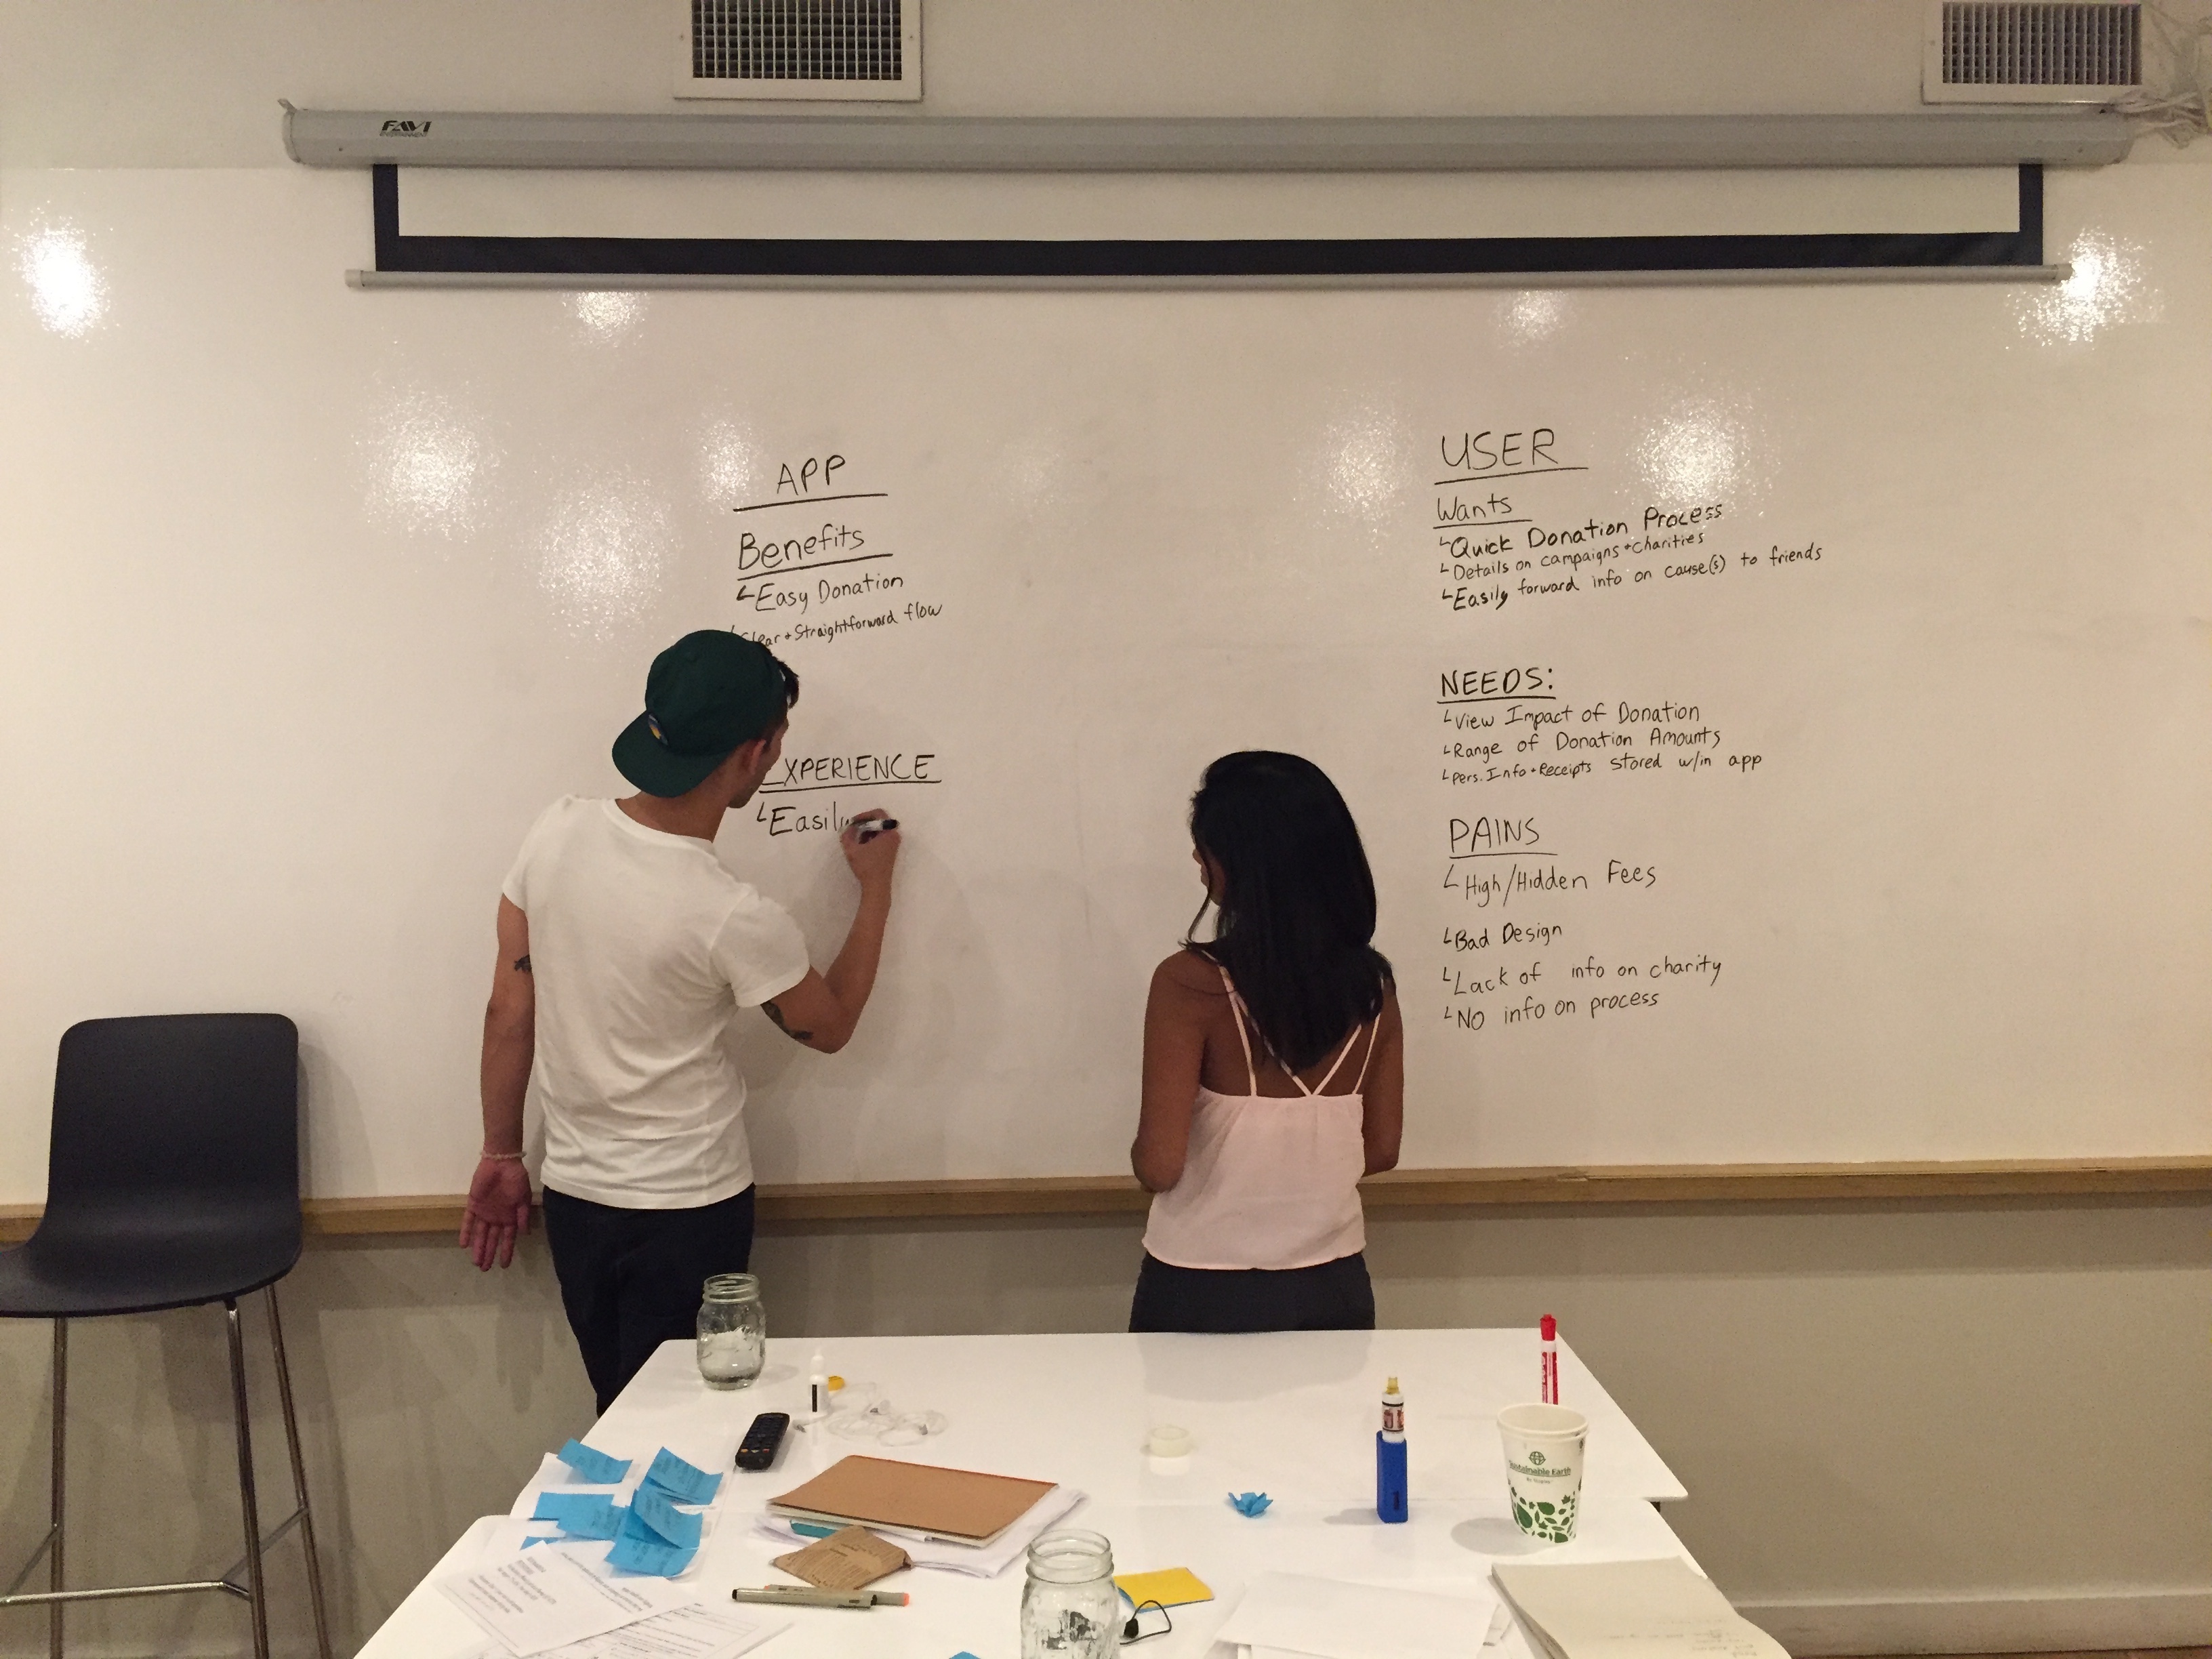 FAVI
APP
Benefits
Easy Donation
Clear + Straightforward flow
XPERIENCE
Easily
USER
Wants
Quick Donation Process
Details on campaigns + charities
Easily forward info on cause(s) to friends
NEEDS:
View Impact of Donation
Range of Donation Amounts
Pers. Info + Receipts stored w/in app
PAINS
High/Hidden Fees
Bad Design
Lack of info on charity
No info on process
Sustainable Earth